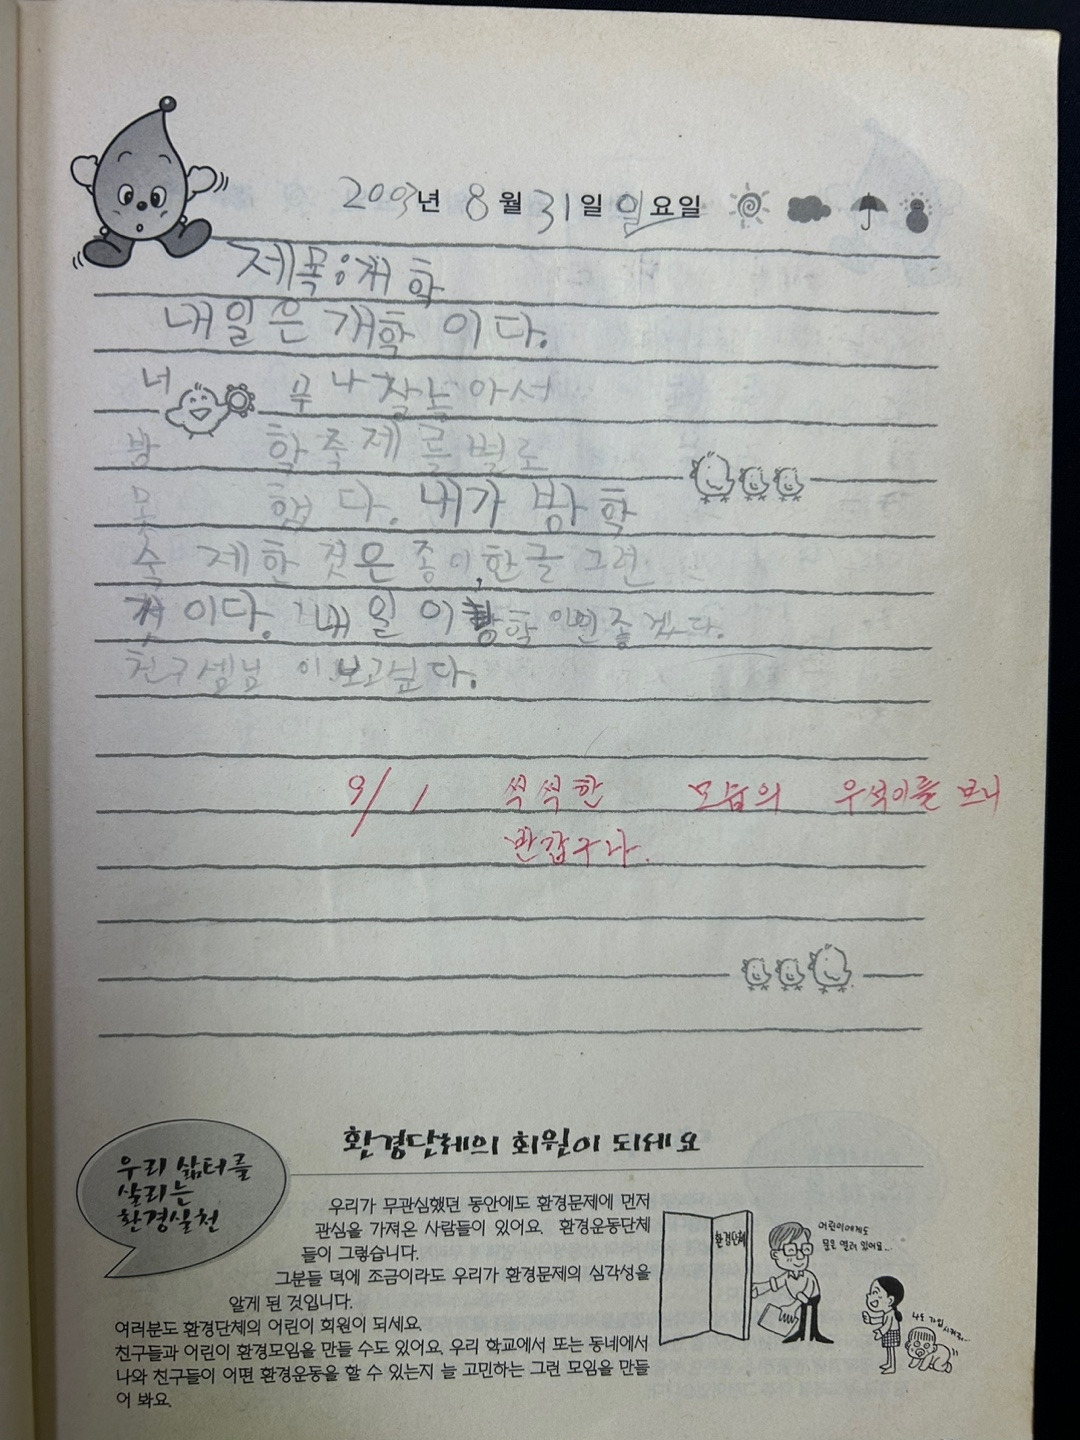 2003년 8월 31일 일요일
제목:개학
내일은 개학 이다.
너무나 잘놀아서
방학축제를별로
못했다. 내가 방학
숙제한것은 종이,한글 그런
것이다. 내일이방학이면좋겠다.
친구셈님이보고싶다.
9/1 씩씩한 모습의 우석이를 보니
반갑구나.
환경단체의 회원이 되세요
우리 삶터를
살리는
환경실천
우리가 무관심했던 동안에도 환경문제에 먼저
관심을 가져온 사람들이 있어요. 환경운동단체
들이 그렇습니다.
그분들 덕에 조금이라도 우리가 환경문제의 심각성을
알게 된 것입니다.
여러분도 환경단체의 어린이 회원이 되세요.
친구들과 어린이 환경모임을 만들 수도 있어요. 우리 학교에서 또는 동네에서
나와 친구들이 어떤 환경운동을 할 수 있는지 늘 고민하는 그런 모임을 만들
어 봐요.
환경단체
어린이에게도
문은 열려 있어요...
나도 가입
시켜줘...